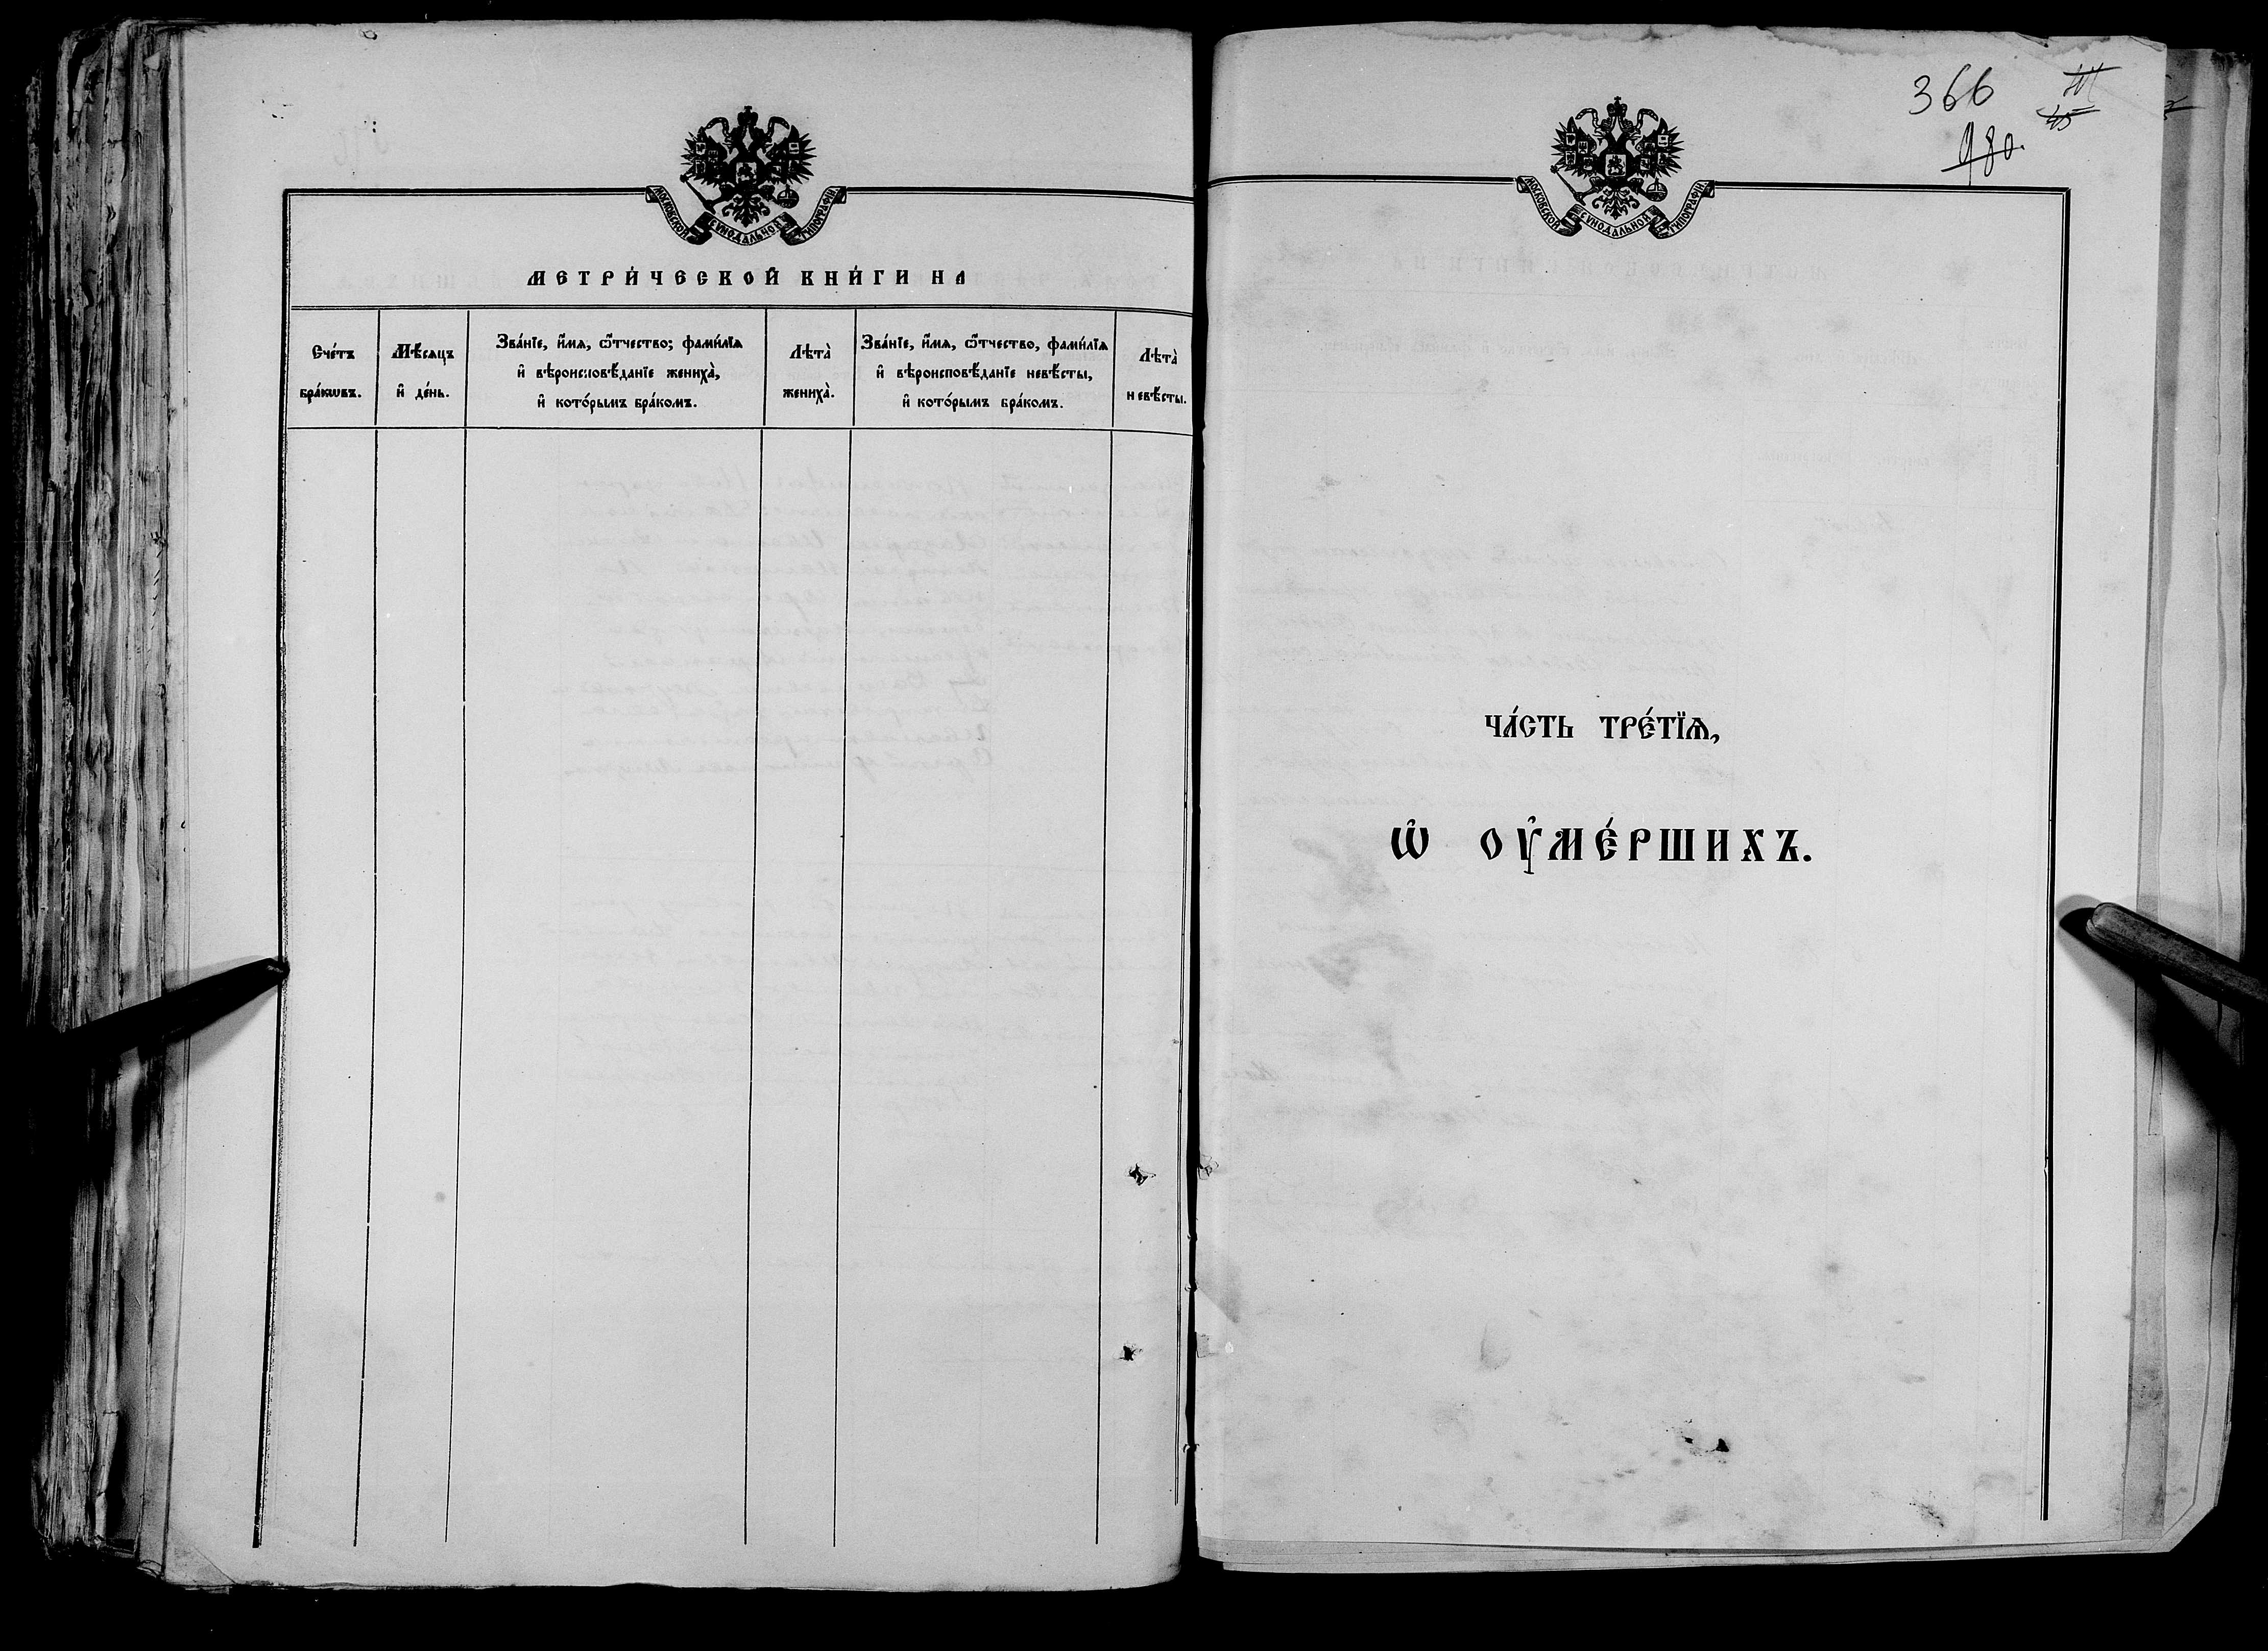 МОСКОВСКОЙ СѴНОДАЛЬНОЙ ТИПОГРАФІИ
МЕТРИ́ЧЕСКОЙ КНИ́ГИ НА
Сче́тъ бра́кѡвъ.
Мѣ́сяцъ и҆ де́нь.
Зва́нїе, и҆́мѧ, ѻ҆́тчество, фами́лїѧ
и҆ вѣроисповѣ́данїе жениха̀,
и҆ кото́рымъ бра́комъ.
Лѣта̀ жениха̀.
Зва́нїе, и҆́мѧ, ѻ҆́тчество, фами́лїѧ
и҆ вѣроисповѣ́данїе невѣ́сты,
и҆ кото́рымъ бра́комъ.
Лѣта̀ невѣ́сты.
366
980.
45
МОСКОВСКОЙ СѴНОДАЛЬНОЙ ТИПОГРАФІИ
ЧА́СТЬ ТРЕ́ТЇѦ,
Ѡ҆ ОУ҆МЕ́РШИХЪ.